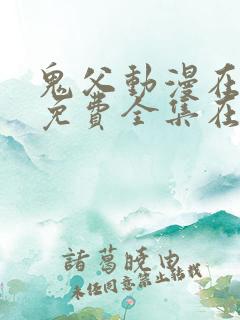 鬼父動漫在
免費全集在
諸葛曉由
未经同意禁止转载